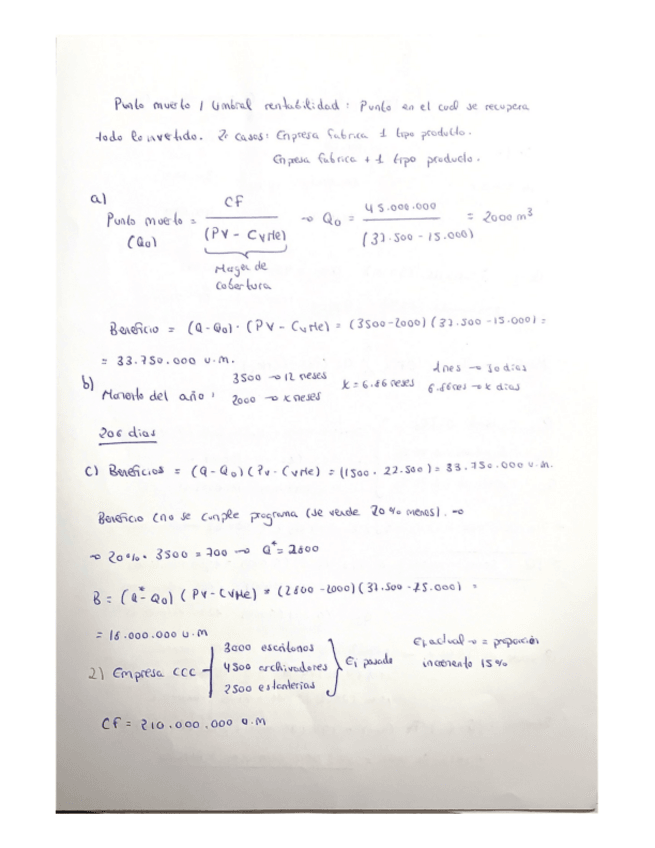 Punto muerto / Umbral rentabilidad: Punto en el cual se recupera
todo lo invertido. 2 casos: Empresa fabrica 1 tipo producto.
Empresa fabrica + 1 tipo producto.
a)
Punto muerto = CF / (PV - CVMe) → Q0 = 45.000.000 / (37.500 - 15.000) = 2000 m³
(Q0)
Margen de
cobertura
Beneficio = (Q-Q0) · (PV - CVMe) = (3500-2000) (37.500 - 15.000) =
= 33.750.000 u.m.
b) Momento del año: 3500 → 12 meses
2000 → x meses
x = 6.86 meses
1 mes → 30 dias
6.86 mes → x dias
206 dias
c) Beneficios = (Q - Q0) (PV - CVMe) = (1500 · 22.500) = 33.750.000 u.m.
Beneficio (no se cumple programa (se vende 20% menos). →
→ 20% · 3500 = 700 → Q* = 2800
B = (Q* - Q0) (PV - CVMe) = (2800 - 2000) (37.500 - 15.000) =
= 18.000.000 u.m
2) Empresa CCC
3000 escritorios
4500 archivadores
2500 estanterias
Ej pasado
Ej actual → = proporción
incremento 15%
CF = 210.000.000 u.m